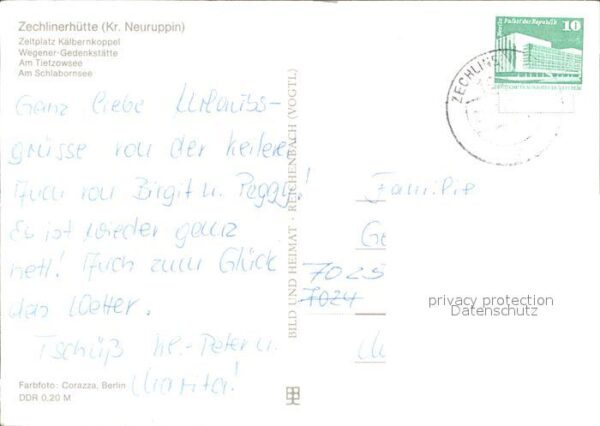 Zechlinerhütte (Kr. Neuruppin)
Zeltplatz Kälbernkoppel
Wegener-Gedenkstätte
Am Tietzowsee
Am Schlabornsee
Ganz liebe Urlaubs-
grüsse von der
Auch von Birgit u. Peggy!
Es ist wieder ganz
nett! Auch zum Glück
das Wetter.
Tschüß Kl.-Peter u.
Marita!
Farbfoto: Corazza, Berlin
DDR 0,20 M
BILD UND HEIMAT · REICHENBACH (VOGTL)
Berlin, Palast der Republik
10
ZECHLINE
Familie
Ge
7025
7024
privacy protection
Datenschutz